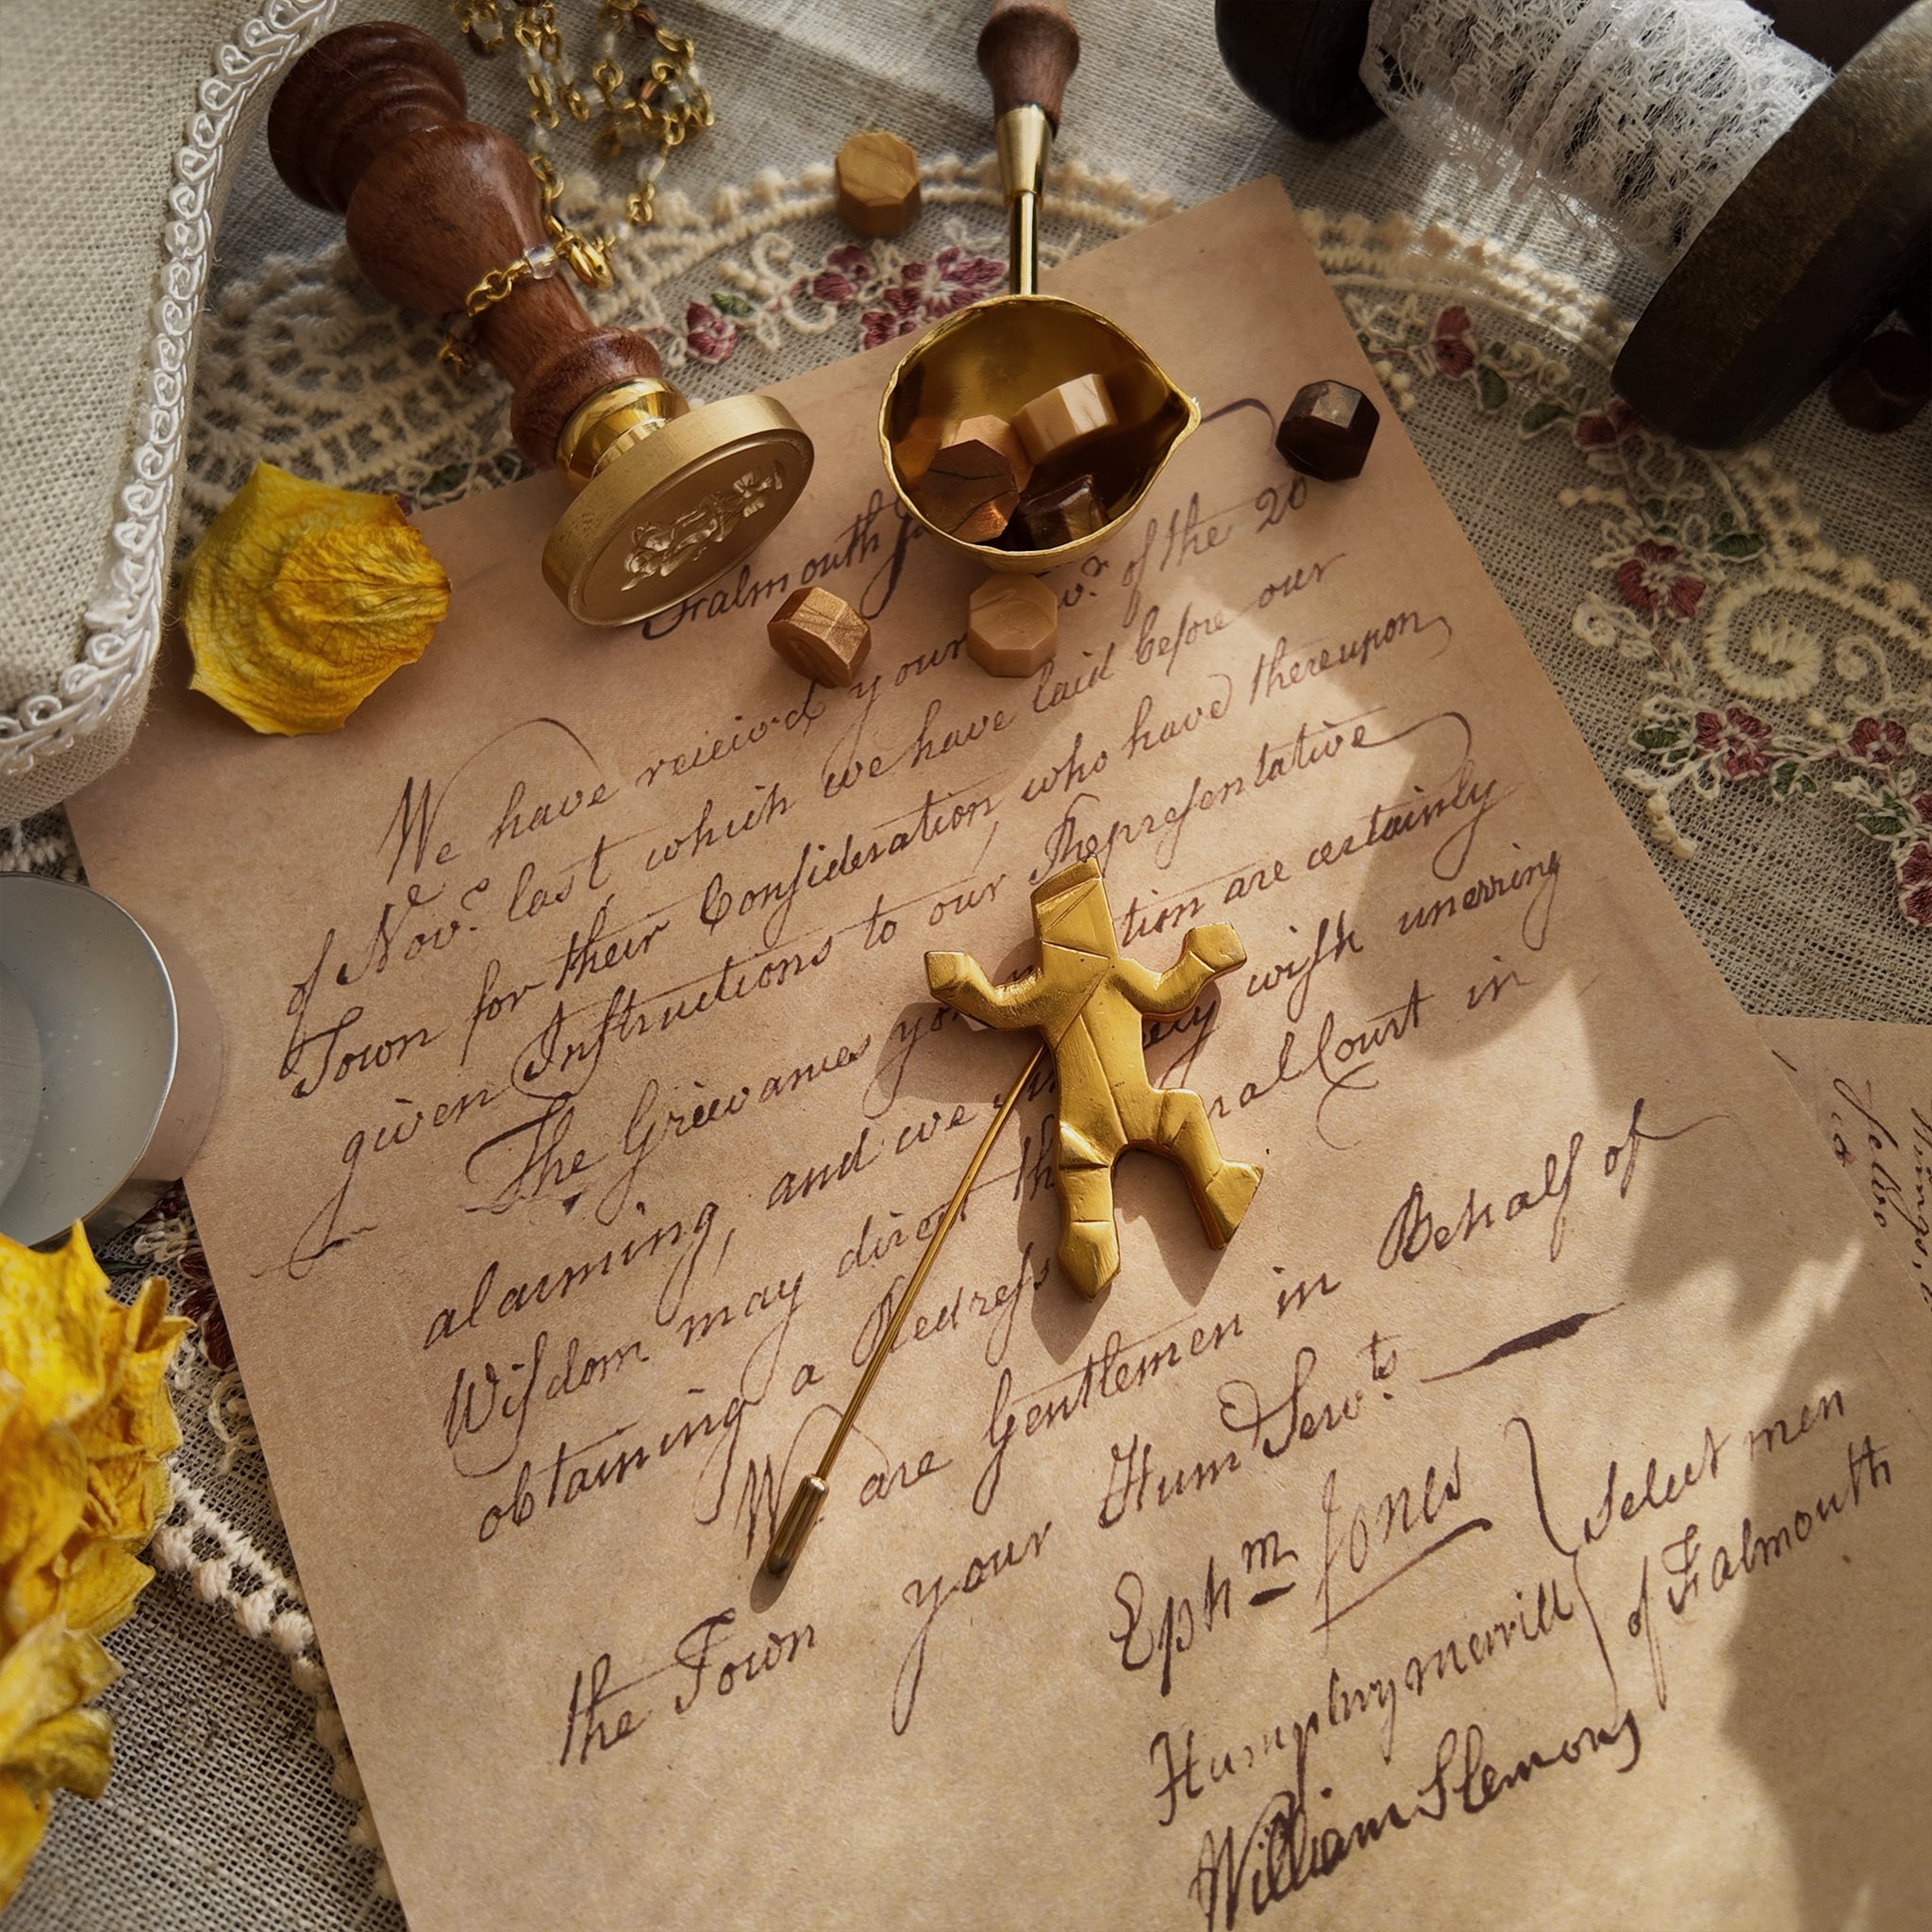 Falmouth
We have receiv'd your of the 20
of Nov.r last which we have laid before our
Town for their Consideration who have thereupon
given Instructions to our Representative
The Grievances tion are certainly
alarming, and we wish unerring
Wisdom may direct th ral Court in
obtaining a Redress
We are Gentlemen in Behalf of
the Town your Hum Serv.ts
Ephm Jones
Humphry merrill
William Slemons
Select men
of Falmouth